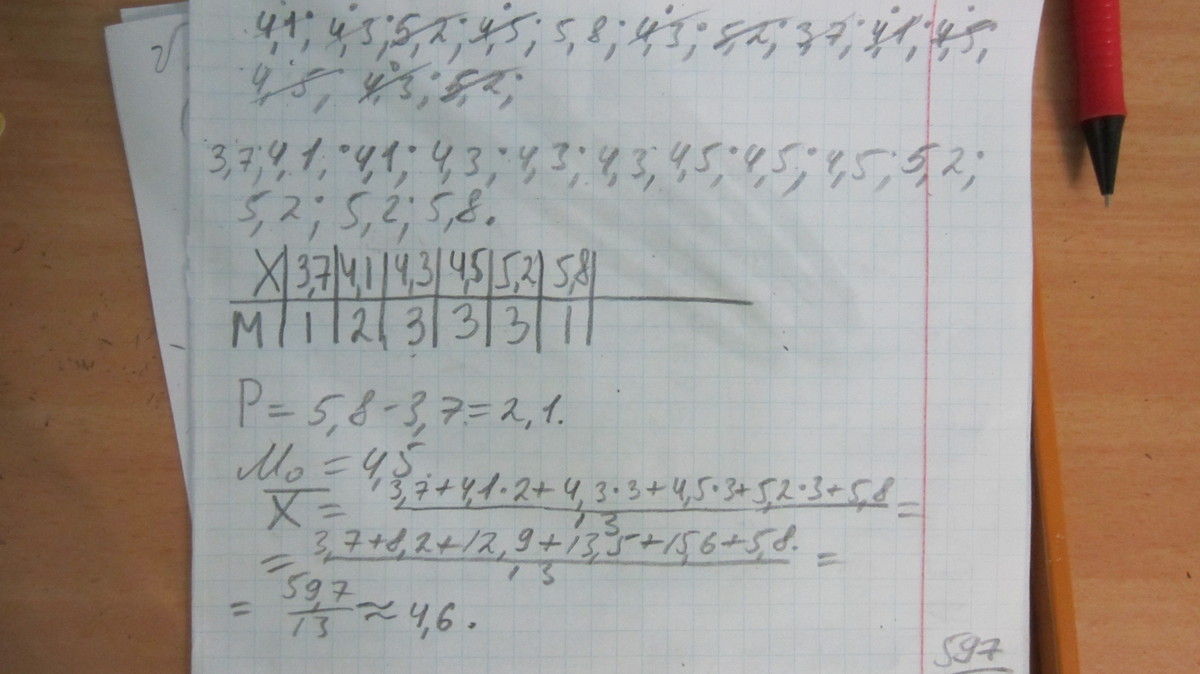 4,1; 4,3; 5,2; 4,5; 5,8; 4,3; 5,2; 3,7; 4,1; 4,5;
4,5; 4,3; 5,2;
3,7; 4,1; 4,1; 4,3; 4,3; 4,3; 4,5; 4,5; 4,5; 5,2;
5,2; 5,2; 5,8.
X | 3,7 | 4,1 | 4,3 | 4,5 | 5,2 | 5,8 |
M | 1 | 2 | 3 | 3 | 3 | 1 |
P = 5,8 - 3,7 = 2,1.
Mo = 4,5.
X̅ = (3,7 + 4,1·2 + 4,3·3 + 4,5·3 + 5,2·3 + 5,8) / 13 =
= (3,7 + 8,2 + 12,9 + 13,5 + 15,6 + 5,8.) / 13 =
= 59,7 / 13 ≈ 4,6.
597